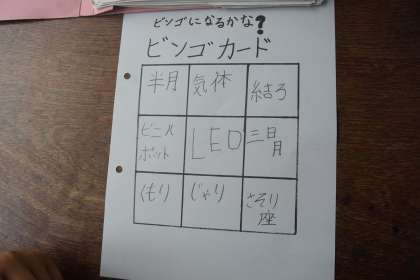 ビンゴになるかな?
ビンゴカード
半月 気体 結ろ
ビニル
ポット
LED
三日
月
くもり じゃり さそり
座